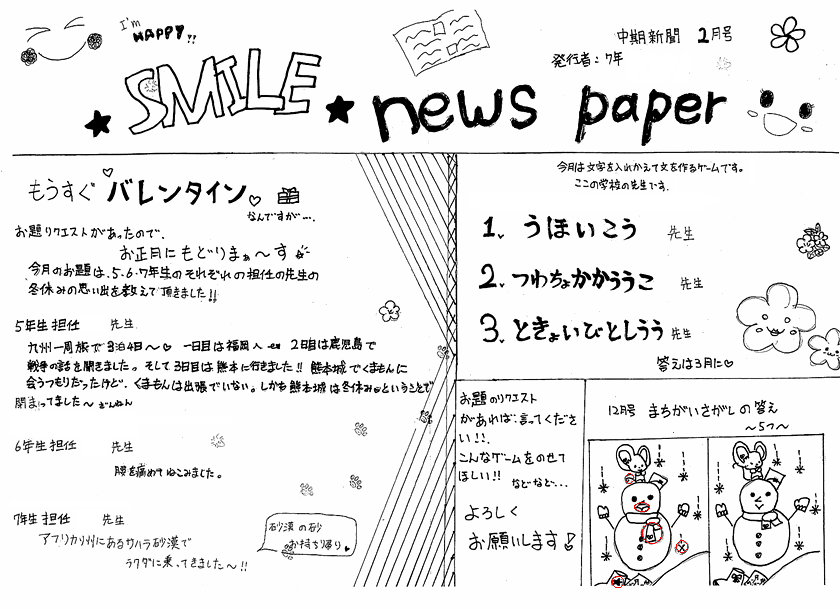 I'm HAPPY!!
中期新聞 2月号
発行者：7年
★SMILE★ news paper
もうすぐ バレンタイン
なんですが…。
お題リクエストがあったので、
お正月にもどりまぁ〜す
今月のお題は、5・6・7年生のそれぞれの担任の先生の
冬休みの思い出を教えて頂きました!!
5年生担任 先生
九州一周旅で3泊4日〜♡ 一日目は福岡へ 2日目は鹿児島で
戦争の話を聞きました。そして3日目は熊本に行きました!! 熊本城でくまもんに
会うつもりだったけど、くまもんは出張でいない。しかも熊本城は冬休みということで
閉まってました〜 ざんねん
6年生担任 先生
腰を痛めてねこみました。
7年生担任 先生
アフリカ州にあるサハラ砂漠で
ラクダに乗ってきました〜!!
砂漠の砂
お持ち帰り♥
今月は文字を入れかえて文を作るゲームです。
ここの学校の先生です。
1、うほいこう 先生
2、つわちょかかううこ 先生
3、ときょいびとしうう 先生
答えは3月に♡
お題のリクエスト
があれば、言ってくださ
い!!、
こんなゲームをのせて
ほしい!! などなど…
よろしく
お願いします!
12月号 まちがいさがしの答え
〜5つ〜